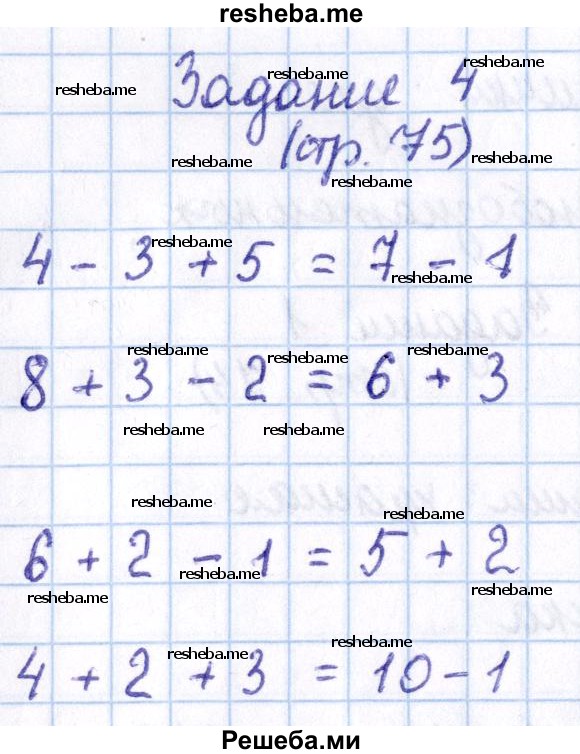 resheba.me
resheba.me resheba.me resheba.me
Задание 4
resheba.me resheba.me
(стр. 75)
resheba.me
resheba.me
4 - 3 + 5 = 7 - 1
resheba.me
resheba.me resheba.me resheba.me
8 + 3 - 2 = 6 + 3
resheba.me resheba.me
resheba.me resheba.me
6 + 2 - 1 = 5 + 2
resheba.me
resheba.me resheba.me
resheba.me resheba.me
4 + 2 + 3 = 10 - 1
Решеба.ми